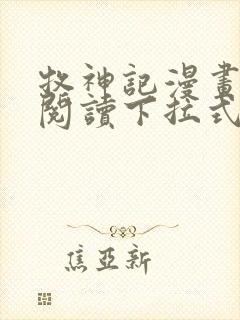 牧神記漫畫
閱讀下拉式
焦亞新